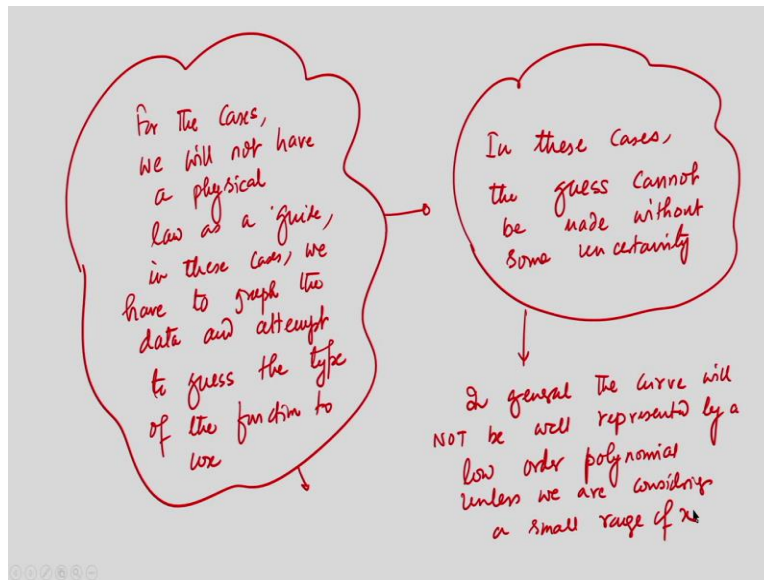 For the cases,
we will not have
a physical
law as a guide,
in these cases, we
have to graph the
data and attempt
to guess the type
of the function to
use
In these cases,
the guess cannot
be made without
some uncertainity
In general the curve will
NOT be well represented by a
low order polynomial
unless we are considering
a small range of x